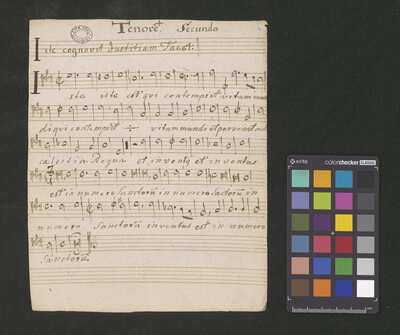 Tenore Secundo
Iste cognovit Justitiam
Ista iste est qui contempsit vitam mun
di qui contempsit vitam mundi et pervenit ad
caelestia Regna et inventus et inventus
est in numero Sanctorum in numero Sanctorum in
numero Sanctorum inventus est in numero
Sanctorum
x-rite
colorchecker CLASSIC